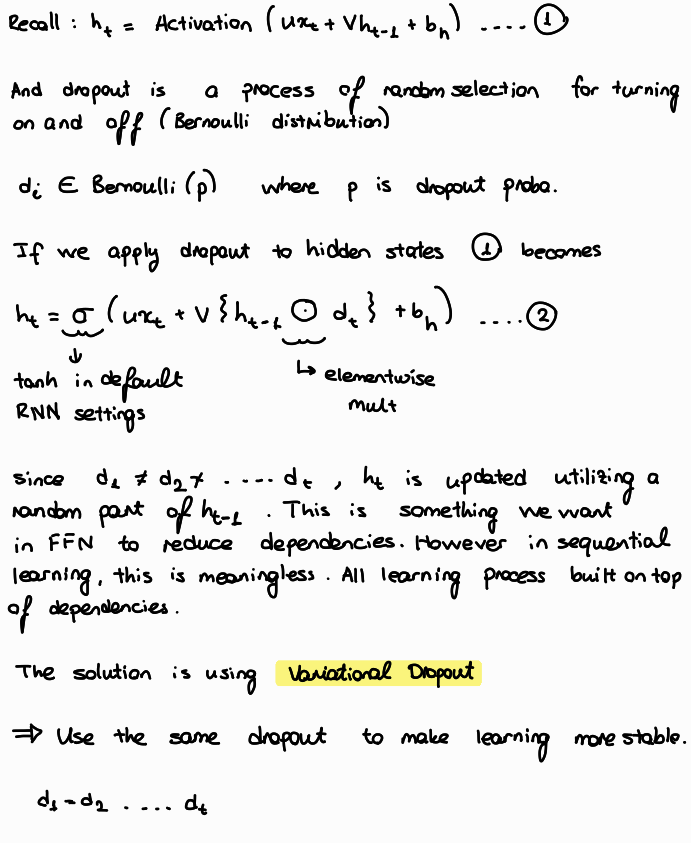 Recall : hₜ = Activation (uxₜ + Vhₜ₋₁ + bₕ) .... ①
And dropout is a process of random selection for turning
on and off (Bernoulli distribution)
dᵢ ∈ Bernoulli (p) where p is dropout proba.
If we apply dropout to hidden states ① becomes
hₜ = σ (uxₜ + V {hₜ₋₁ ⊙ dₜ} + bₕ) .... ②
↓
tanh in default
RNN settings
↳ elementwise
mult
since d₁ ≠ d₂ ≠ ..... dₜ , hₜ is updated utilizing a
random part of hₜ₋₁ . This is something we want
in FFN to reduce dependencies. However in sequential
learning, this is meaningless. All learning process built on top
of dependencies.
The solution is using Variational Dropout
⇒ Use the same dropout to make learning more stable.
d₁ = d₂ .... dₜ